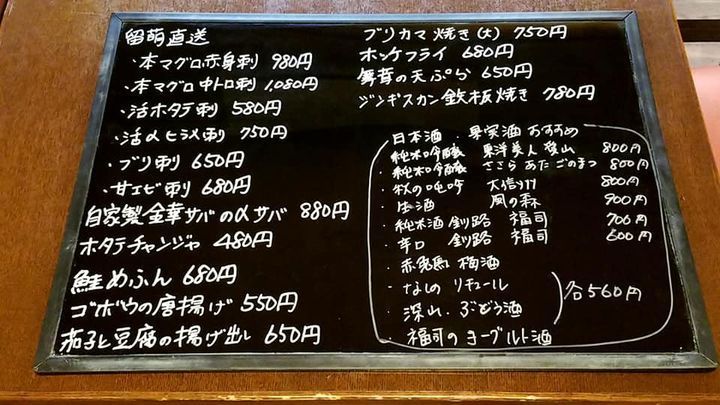 留萌直送
・本マグロ赤身刺 980円
・本マグロ中トロ刺 1,080円
・活ホタテ刺 580円
・活〆ヒラメ刺 750円
・ブリ刺 650円
・甘エビ刺 680円
自家製金華サバの〆サバ 880円
ホタテチャンジャ 480円
鮭めふん 680円
ゴボウの唐揚げ 550円
茄子と豆腐の揚げ出し 650円
ブリカマ焼き(大) 750円
ホッケフライ 680円
舞茸の天ぷら 650円
ジンギスカン鉄板焼き 780円
日本酒・果実酒おすすめ
純米吟醸 東洋美人 800円
純米吟醸 ささら あたごのまつ 800円
・秋の 大信州 800円
・生酒 風の森 900円
・純米酒 釧路 福司 700円
・辛口 釧路 福司 600円
・赤兎馬 梅酒
・なしのリキュール
・深山 ぶどう酒
・福司のヨーグルト酒
各560円